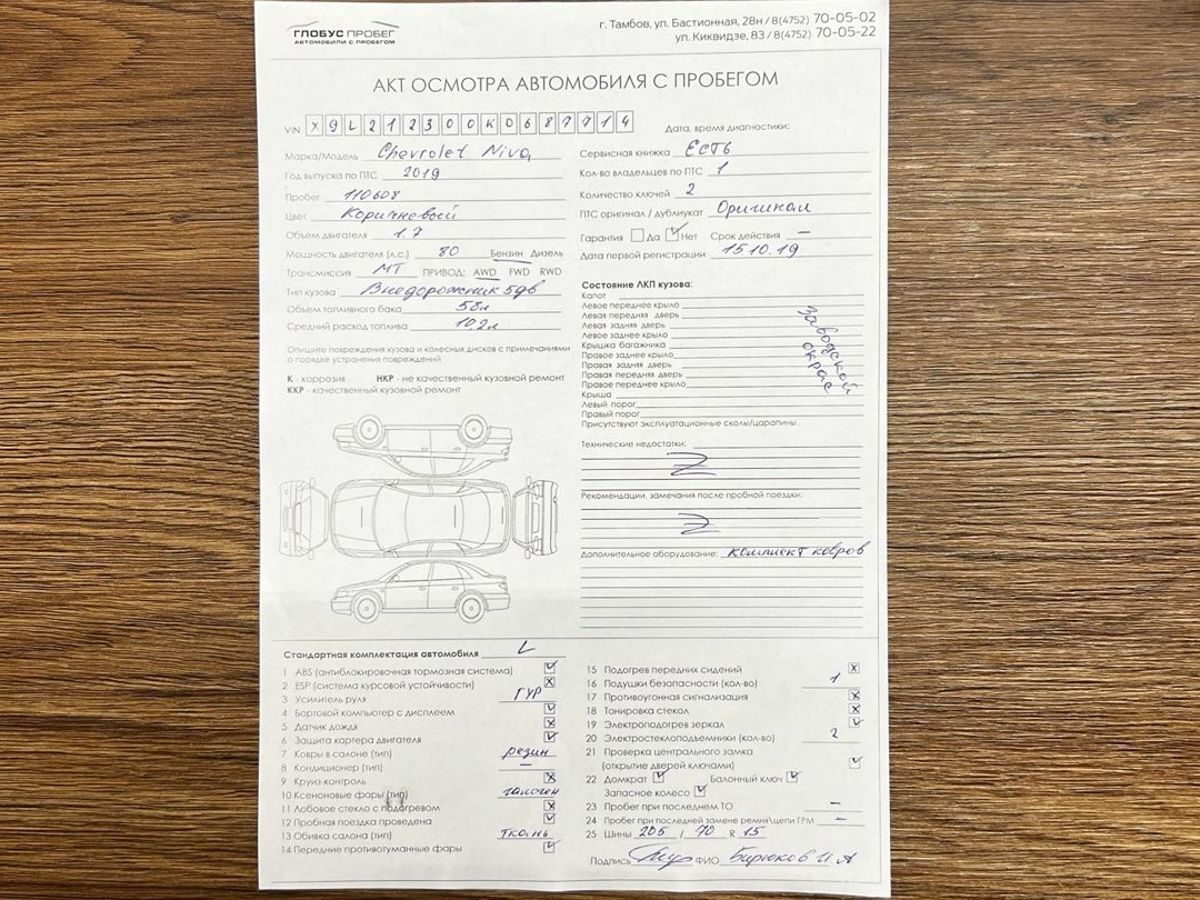 ГЛОБУС ПРОБЕГ
АВТОМОБИЛИ С ПРОБЕГОМ
г. Тамбов, ул. Бастионная, 28н / 8(4752) 70-05-02
ул. Киквидзе, 83 / 8(4752) 70-05-22
АКТ ОСМОТРА АВТОМОБИЛЯ С ПРОБЕГОМ
VIN X9L212300K0687714
Марка/Модель Chevrolet Niva
Год выпуска по ПТС 2019
Пробег 110608
Цвет Коричневый
Объем двигателя 1.7
Мощность двигателя (л.с.) 80 Бензин Дизель
Трансмиссия МТ ПРИВОД: AWD FWD RWD
Тип кузова Внедорожник 5дв
Объем топливного бака 58л
Средний расход топлива 10,2л
Опишите повреждения кузова и колесных дисков с примечаниями
о порядке устранения повреждений
К - коррозия НКР - не качественный кузовной ремонт
ККР - качественный кузовной ремонт
Дата, время диагностики:
Сервисная книжка Есть
Кол-во владельцев по ПТС 1
Количество ключей 2
ПТС оригинал / дубликат Оригинал
Гарантия Да Нет Срок действия —
Дата первой регистрации 15.10.19
Состояние ЛКП кузова:
Капот
Левое переднее крыло
Левая передняя дверь
Левая задняя дверь
Левое заднее крыло
Крышка багажника
Правое заднее крыло
Правая задняя дверь
Правая передняя дверь
Правое переднее крыло
Крыша
Левый порог
Правый порог
Заводской
окрас
Присутствуют эксплуатационные сколы/царапины.
Технические недостатки:
Z
Рекомендации, замечания после пробной поездки:
Z
Дополнительное оборудование: комплект ковров
Стандартная комплектация автомобиля L
1 ABS (антиблокировочная тормозная система)
2 ESP (система курсовой устойчивости)
3 Усилитель руля ГУР
4 Бортовой компьютер с дисплеем
5 Датчик дождя
6 Защита картера двигателя
7 Ковры в салоне (тип) резин
8 Кондиционер (тип) —
9 Круиз-контроль
10 Ксеноновые фары (тип) галоген
11 Лобовое стекло с подогревом
12 Пробная поездка проведена
13 Обивка салона (тип) ткань
14 Передние противотуманные фары
15 Подогрев передних сидений
16 Подушки безопасности (кол-во) 1
17 Противоугонная сигнализация
18 Тонировка стекол
19 Электроподогрев зеркал
20 Электростеклоподъемники (кол-во) 2
21 Проверка центрального замка
(открытие дверей ключами)
22 Домкрат Балонный ключ
Запасное колесо
23 Пробег при последнем ТО —
24 Пробег при последней замене ремня\цепи ГРМ —
25 Шины 205 / 70 R 15
Подпись ФИО Бирюков И А